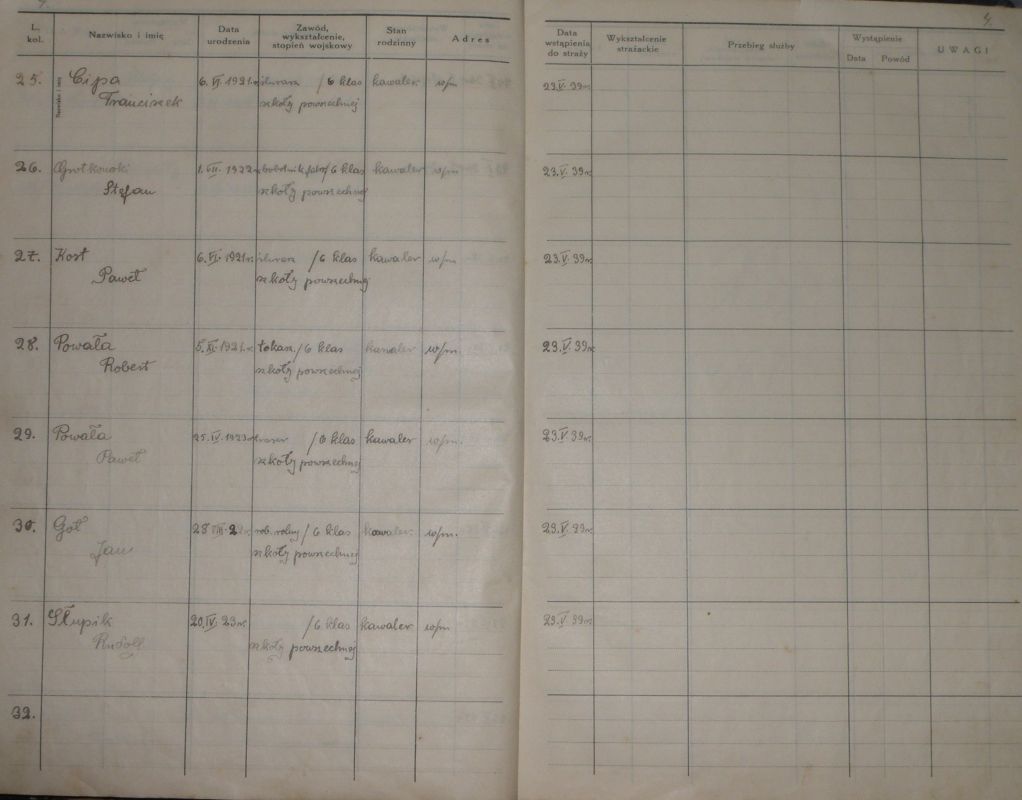 4.
L. kol.
Nazwisko i imię
Data urodzenia
Zawód, wykształcenie, stopień wojskowy
Stan rodzinny
Adres
Data wstąpienia do straży
Wykształcenie strażackie
Przebieg służby
Wystąpienie
Data
Powód
UWAGI
25. Cipa 6. VI. 1921. ślusarz /6 klas kawaler w/m 23.V.39r.
Franciszek szkoły powszechnej
26. 1. VII. 1922r. /6 klas kawaler w/m 23.V.39r.
Stefan szkoły powszechnej
27. Kost 6. VI. 1921r. ślusarz /6 klas kawaler w/m 23.V.39r.
Paweł szkoły powszechnej
28. Powała 5. XI. 1921. tokarz /6 klas kawaler w/m. 23.V.39r.
Robert szkoły powszechnej
29. Powała 25. IV. 1923 /6 klas kawaler w/m. 23.V.39r.
Paweł szkoły powszechnej
30. Goł 28 VIII. rob. rolny /6 klas kawaler w/m. 23.V.39r.
Jan szkoły powszechnej
31. Słupik 20. IV. 23r. /6 klas kawaler w/m 23.V.39r.
Rudolf szkoły powszechnej
32.